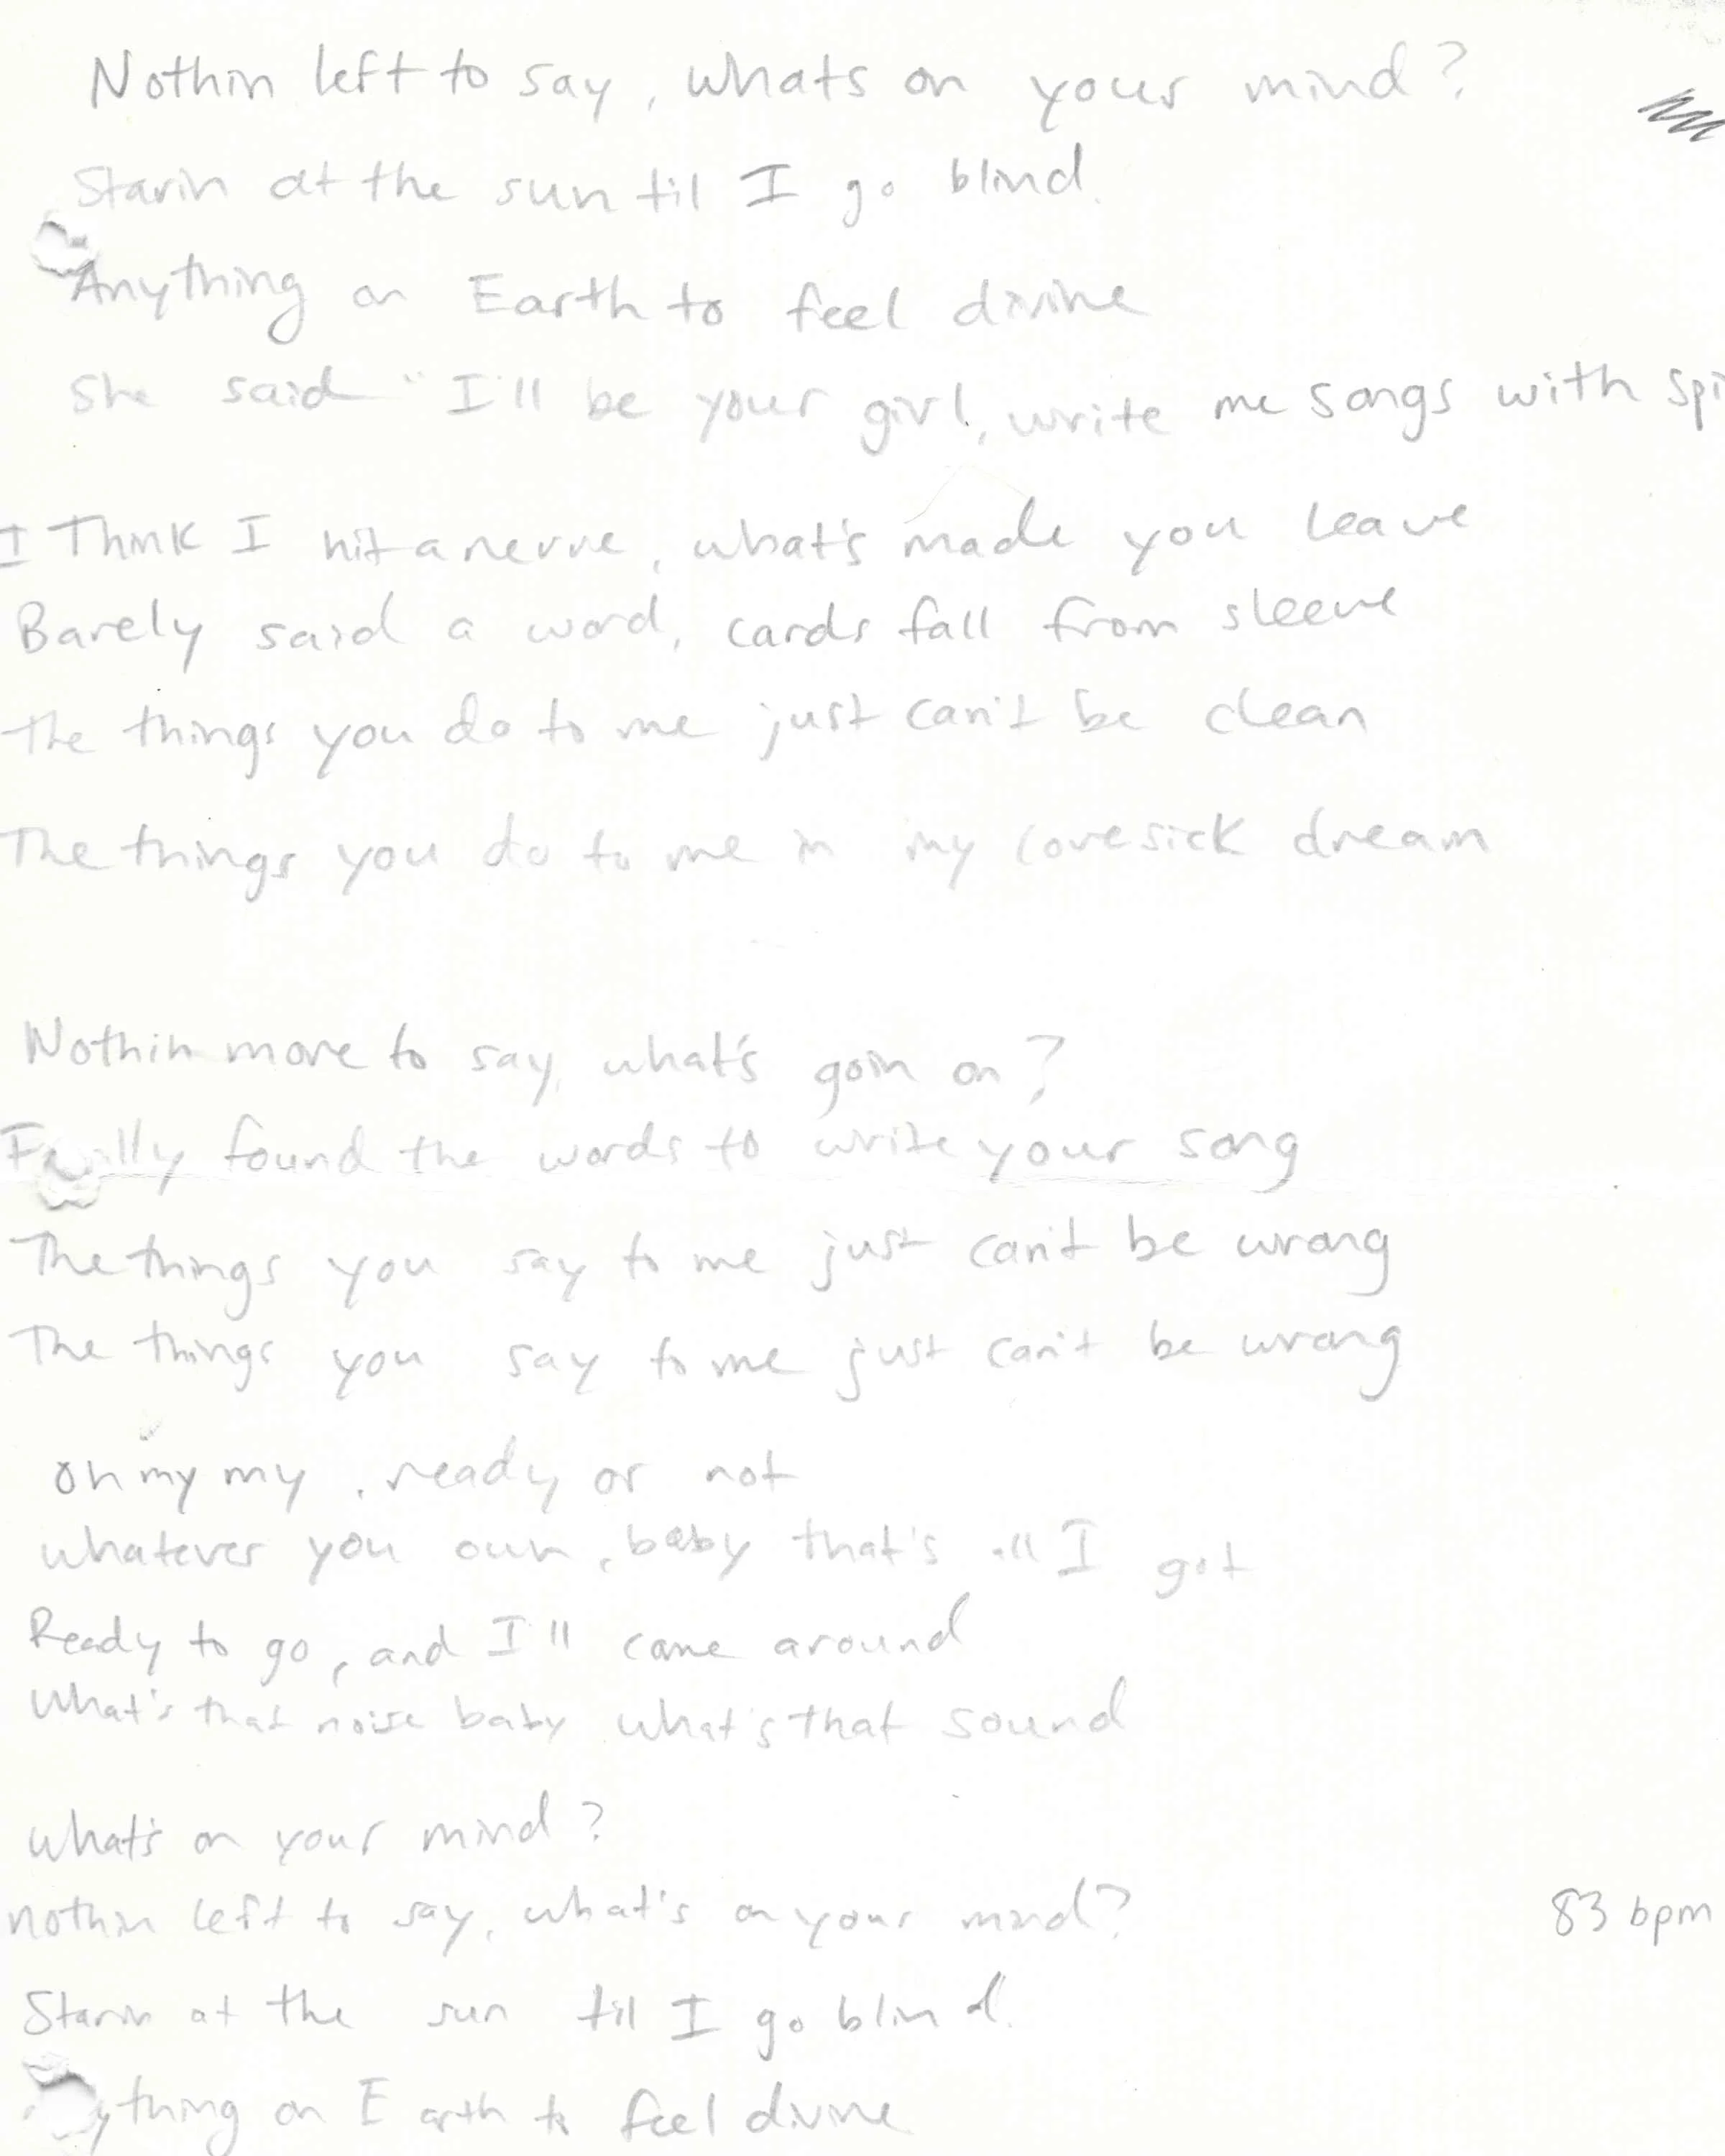 Nothin left to say, whats on your mind?
Starin at the sun til I go blind.
Anything on Earth to feel divine
She said "I'll be your girl, write me songs with spi
I Think I hit a nerve, what's made you leave
Barely said a word, cards fall from sleeve
The things you do to me just can't be clean
The things you do to me in my lovesick dream
Nothin more to say, what's goin on?
found the words to write your song
The things you say to me just can't be wrong
The things you say to me just can't be wrong
oh my my, ready or not
whatever you own, baby that's all I got
Ready to go, and I'll come around
What's that noise baby what's that sound
what's on your mind?
nothin left to say, what's on your mind?
83 bpm
Starin at the sun til I go blind.
ything on Earth to feel divine